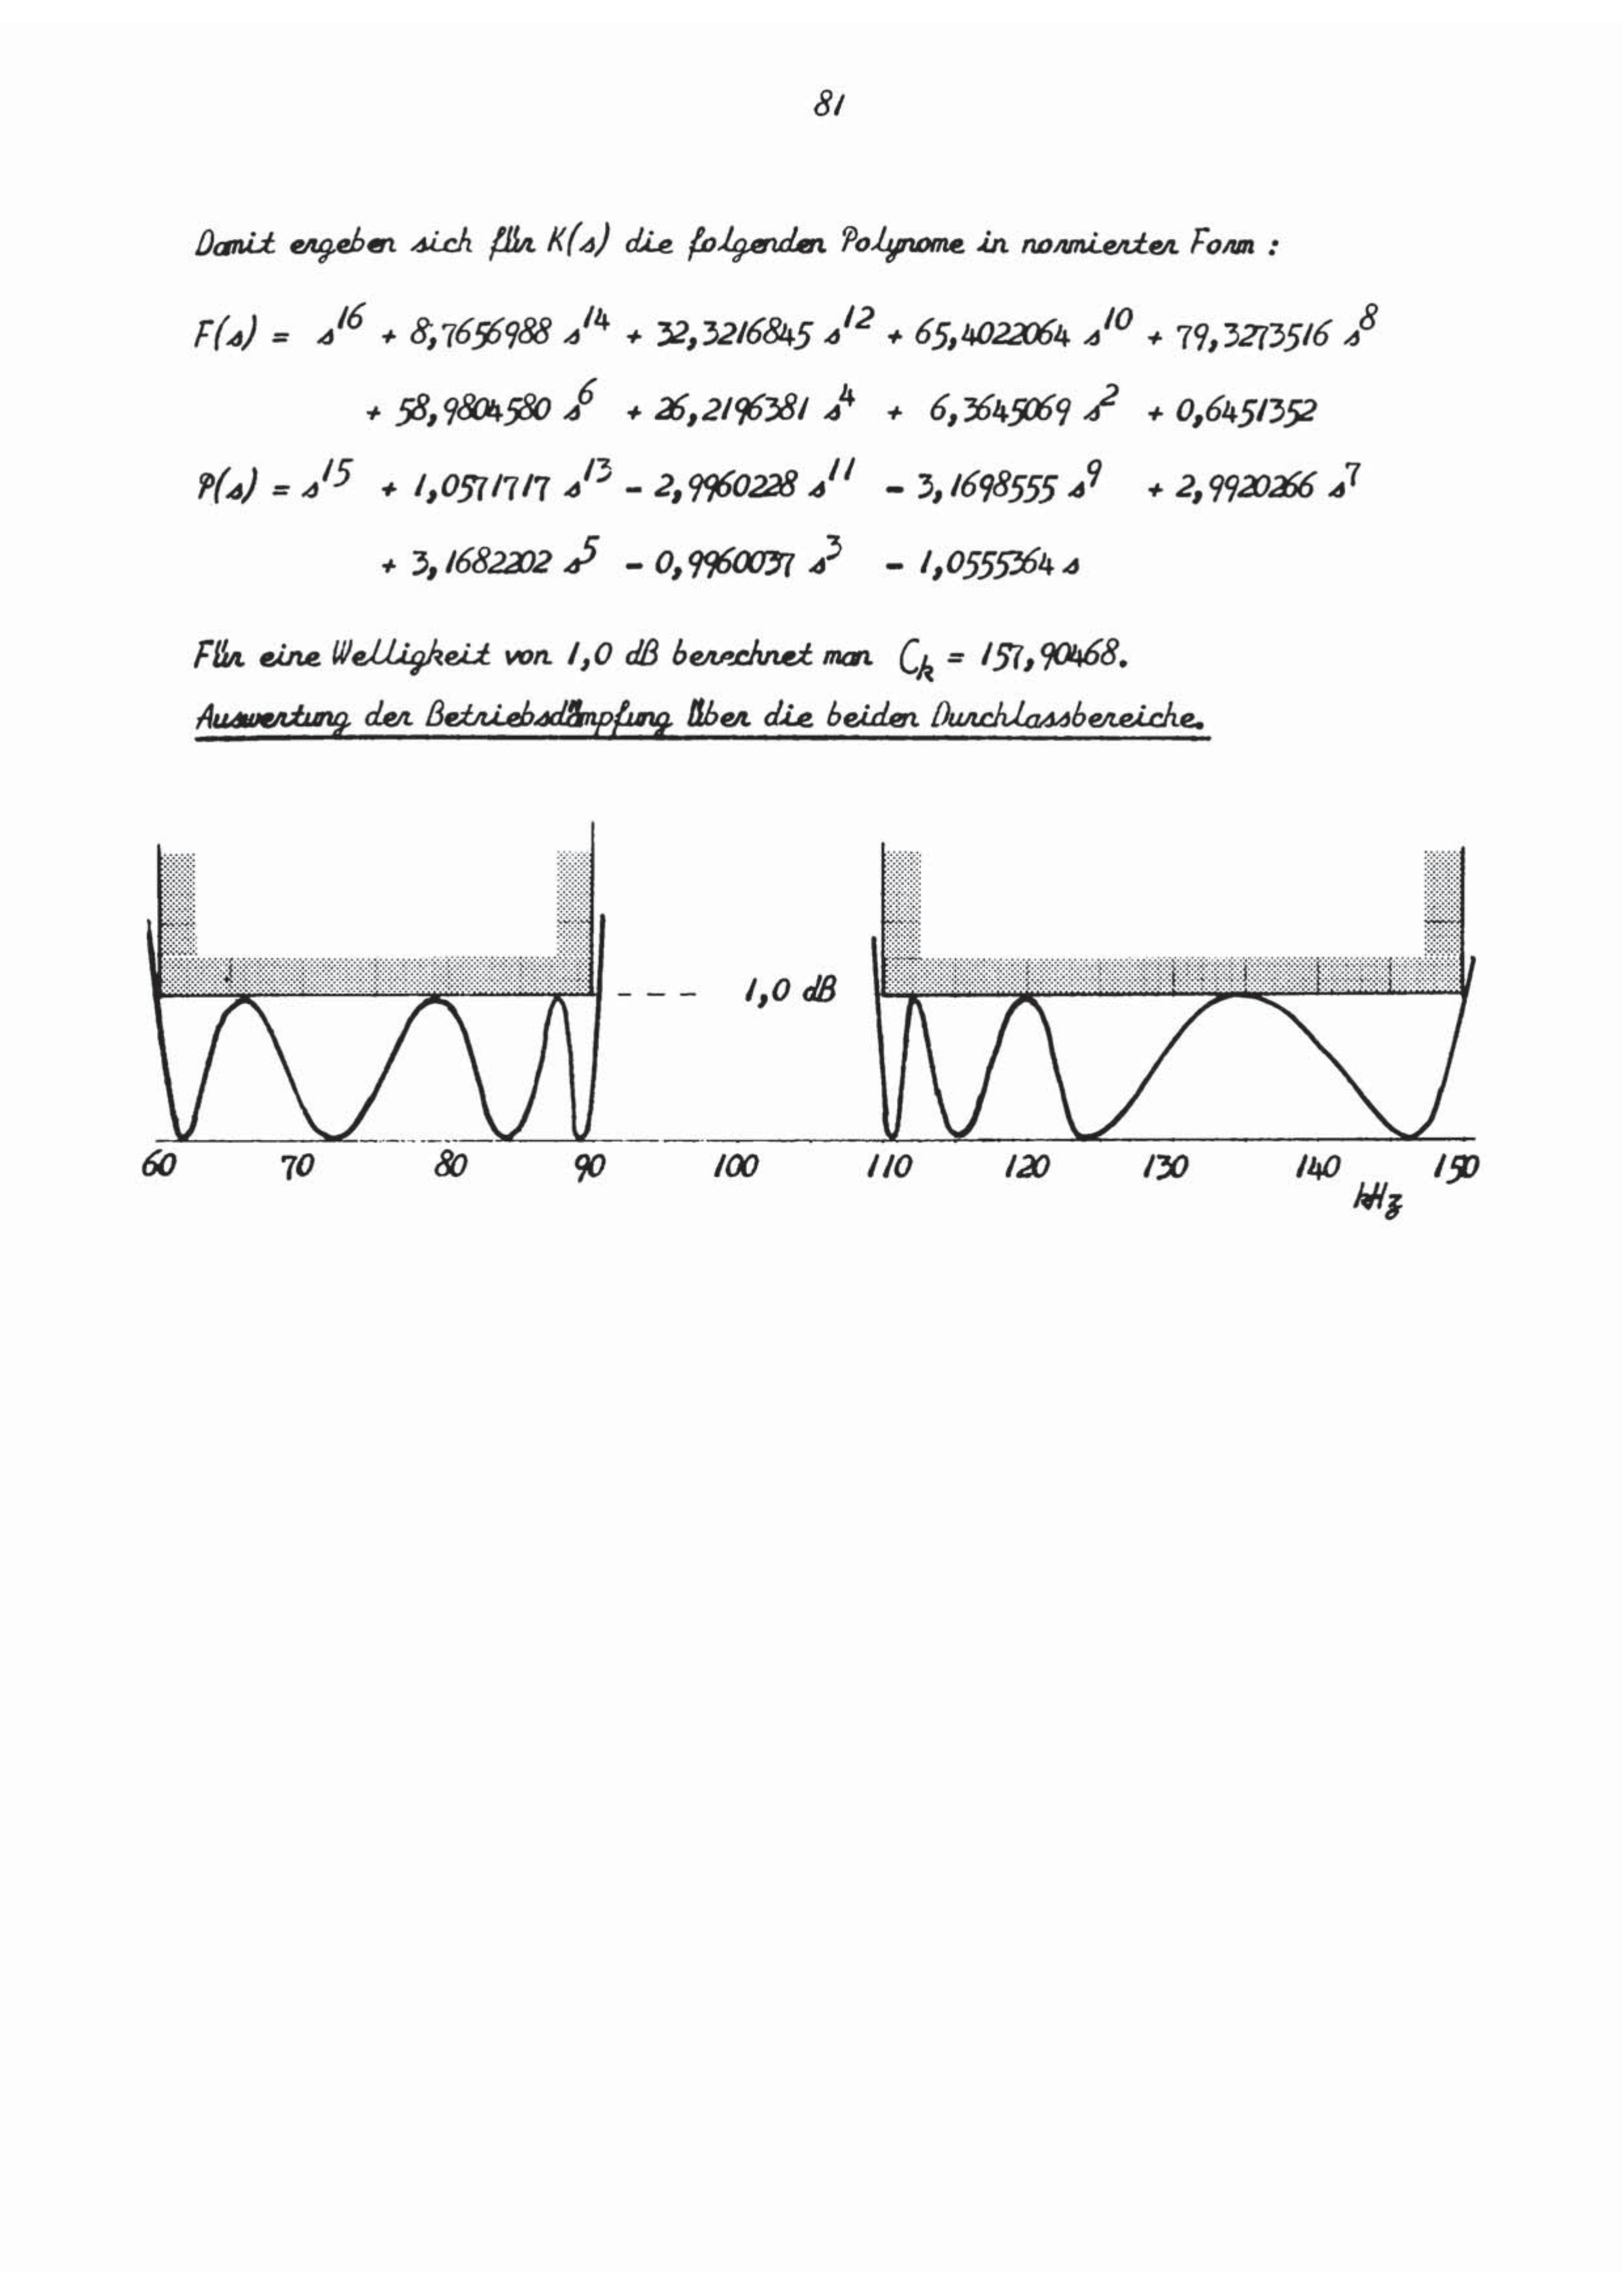 81
Damit ergeben sich für K(s) die folgenden Polynome in normierter Form :
F(s) = s^16 + 8,7656988 s^14 + 32,3216845 s^12 + 65,4022064 s^10 + 79,3273516 s^8
+ 58,9804580 s^6 + 26,2196381 s^4 + 6,3645069 s^2 + 0,6451352
P(s) = s^15 + 1,0571717 s^13 - 2,9960228 s^11 - 3,1698555 s^9 + 2,9920266 s^7
+ 3,1682202 s^5 - 0,9960037 s^3 - 1,0555364 s
Für eine Welligkeit von 1,0 dB berechnet man C_k = 157,90468.
Auswertung der Betriebsdämpfung über die beiden Durchlassbereiche.
1,0 dB
60 70 80 90 100 110 120 130 140 150
kHz